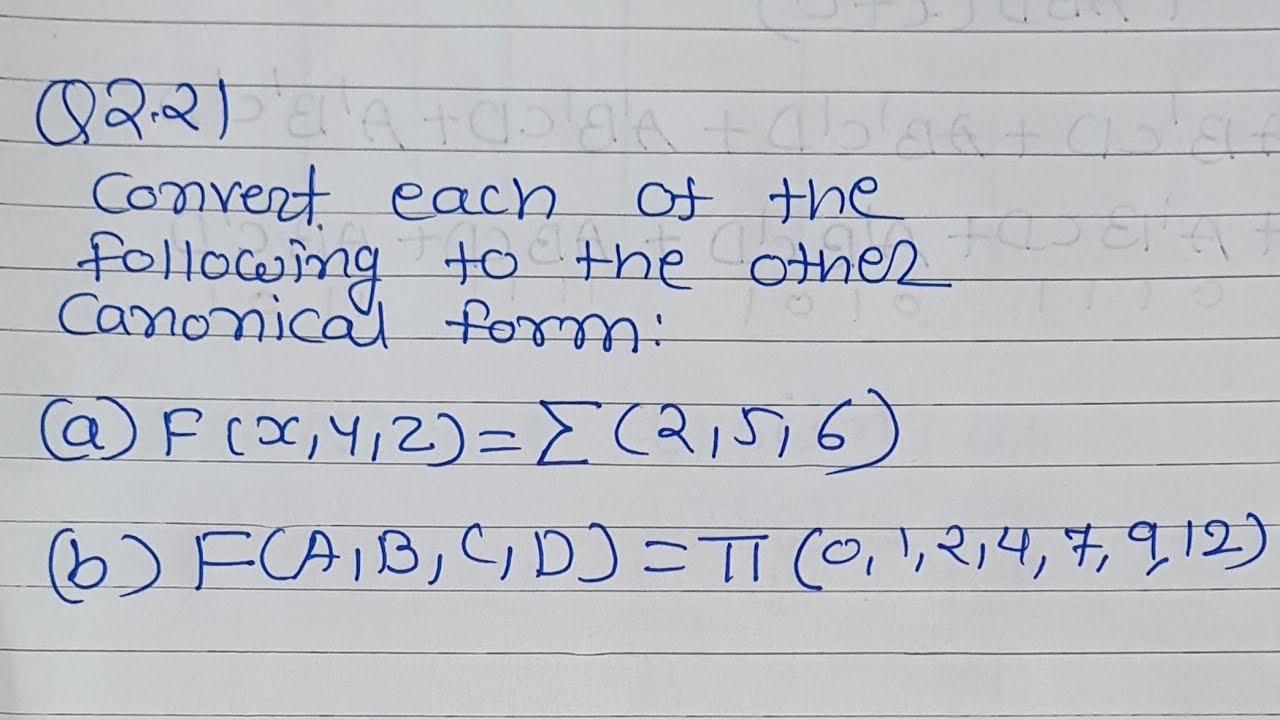 Q2.21
Convert each of the
following to the other
Canonical form:
(a) F(x,y,z)=Σ(2,5,6)
(b) F(A,B,C,D)=π(0,1,2,4,7,9,12)